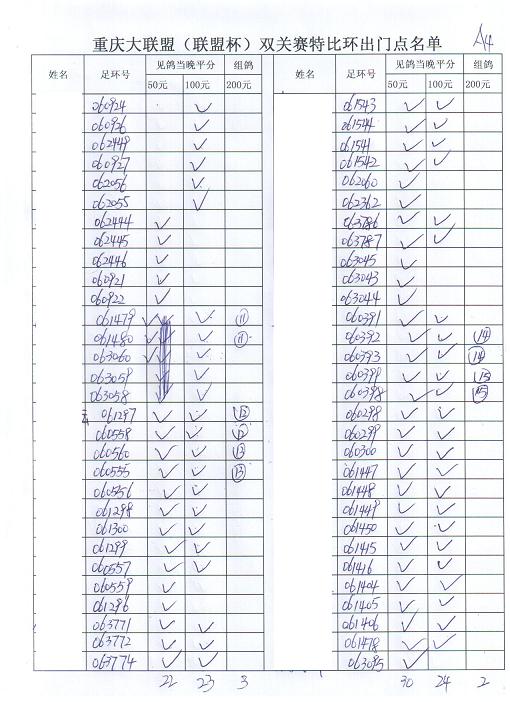 A4
重庆大联盟（联盟杯）双关赛特比环出门点名单
姓名 足环号 见鸽当晚平分 组鸽 姓名 足环号 见鸽当晚平分 组鸽
50元 100元 200元 50元 100元 200元
060924 ✓ 061543 ✓ ✓
060926 ✓ 061544 ✓ ✓
062449 ✓ 061541 ✓ ✓
060927 ✓ 061542 ✓ ✓
062056 ✓ 062060 ✓
062055 ✓ 062362 ✓
062444 ✓ 063786 ✓ ✓
062445 ✓ 063787 ✓ ✓
062446 ✓ 063045 ✓
060921 ✓ 063043 ✓
060922 ✓ 063044 ✓
061479 ✓ ✓ ⑪ 060391 ✓ ✓
061480 ✓ ✓ ⑪ 060392 ✓ ✓ ⑭
063060 ✓ ✓ 060393 ✓ ✓ ⑭
063059 ✓ ✓ 060399 ✓ ✓ ⑮
063058 ✓ ✓ 060398 ✓ ✓ ⑮
061297 ✓ ✓ ⑫ 060298 ✓ ✓
060558 ✓ ✓ ⑫ 060299 ✓ ✓
060560 ✓ ✓ ⑬ 060300 ✓ ✓
060555 ✓ ✓ ⑬ 061447 ✓ ✓
060556 ✓ ✓ 061448 ✓ ✓
061298 ✓ ✓ 061449 ✓ ✓
061300 ✓ ✓ 061450 ✓ ✓
061299 ✓ ✓ 061415 ✓ ✓
060557 ✓ ✓ 061416 ✓ ✓
060559 ✓ 061404 ✓ ✓
061296 ✓ 061405 ✓ ✓
063771 ✓ ✓ 061406 ✓ ✓
063772 ✓ ✓ 061478 ✓ ✓
063774 ✓ ✓ 063095 ✓
22 23 3 30 24 2